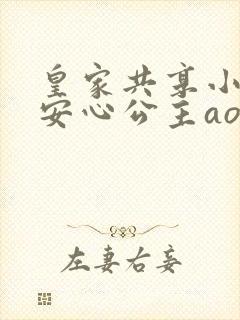 皇家共享小
安心公主ao
左妻右妾